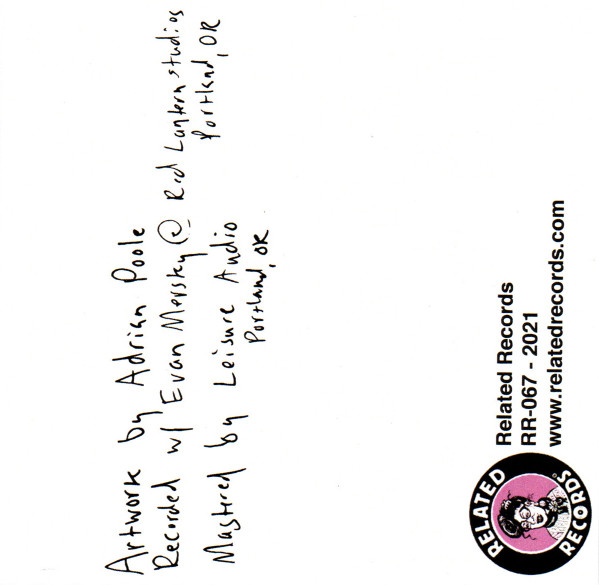 Artwork by Adrian Poole
Recorded w/ Evan Mersky @ Red Lantern studios
Portland, OR
Mastered by Leisure Audio
Portland, OR
Related Records
RR-067 - 2021
www.relatedrecords.com
RELATED
RECORDS